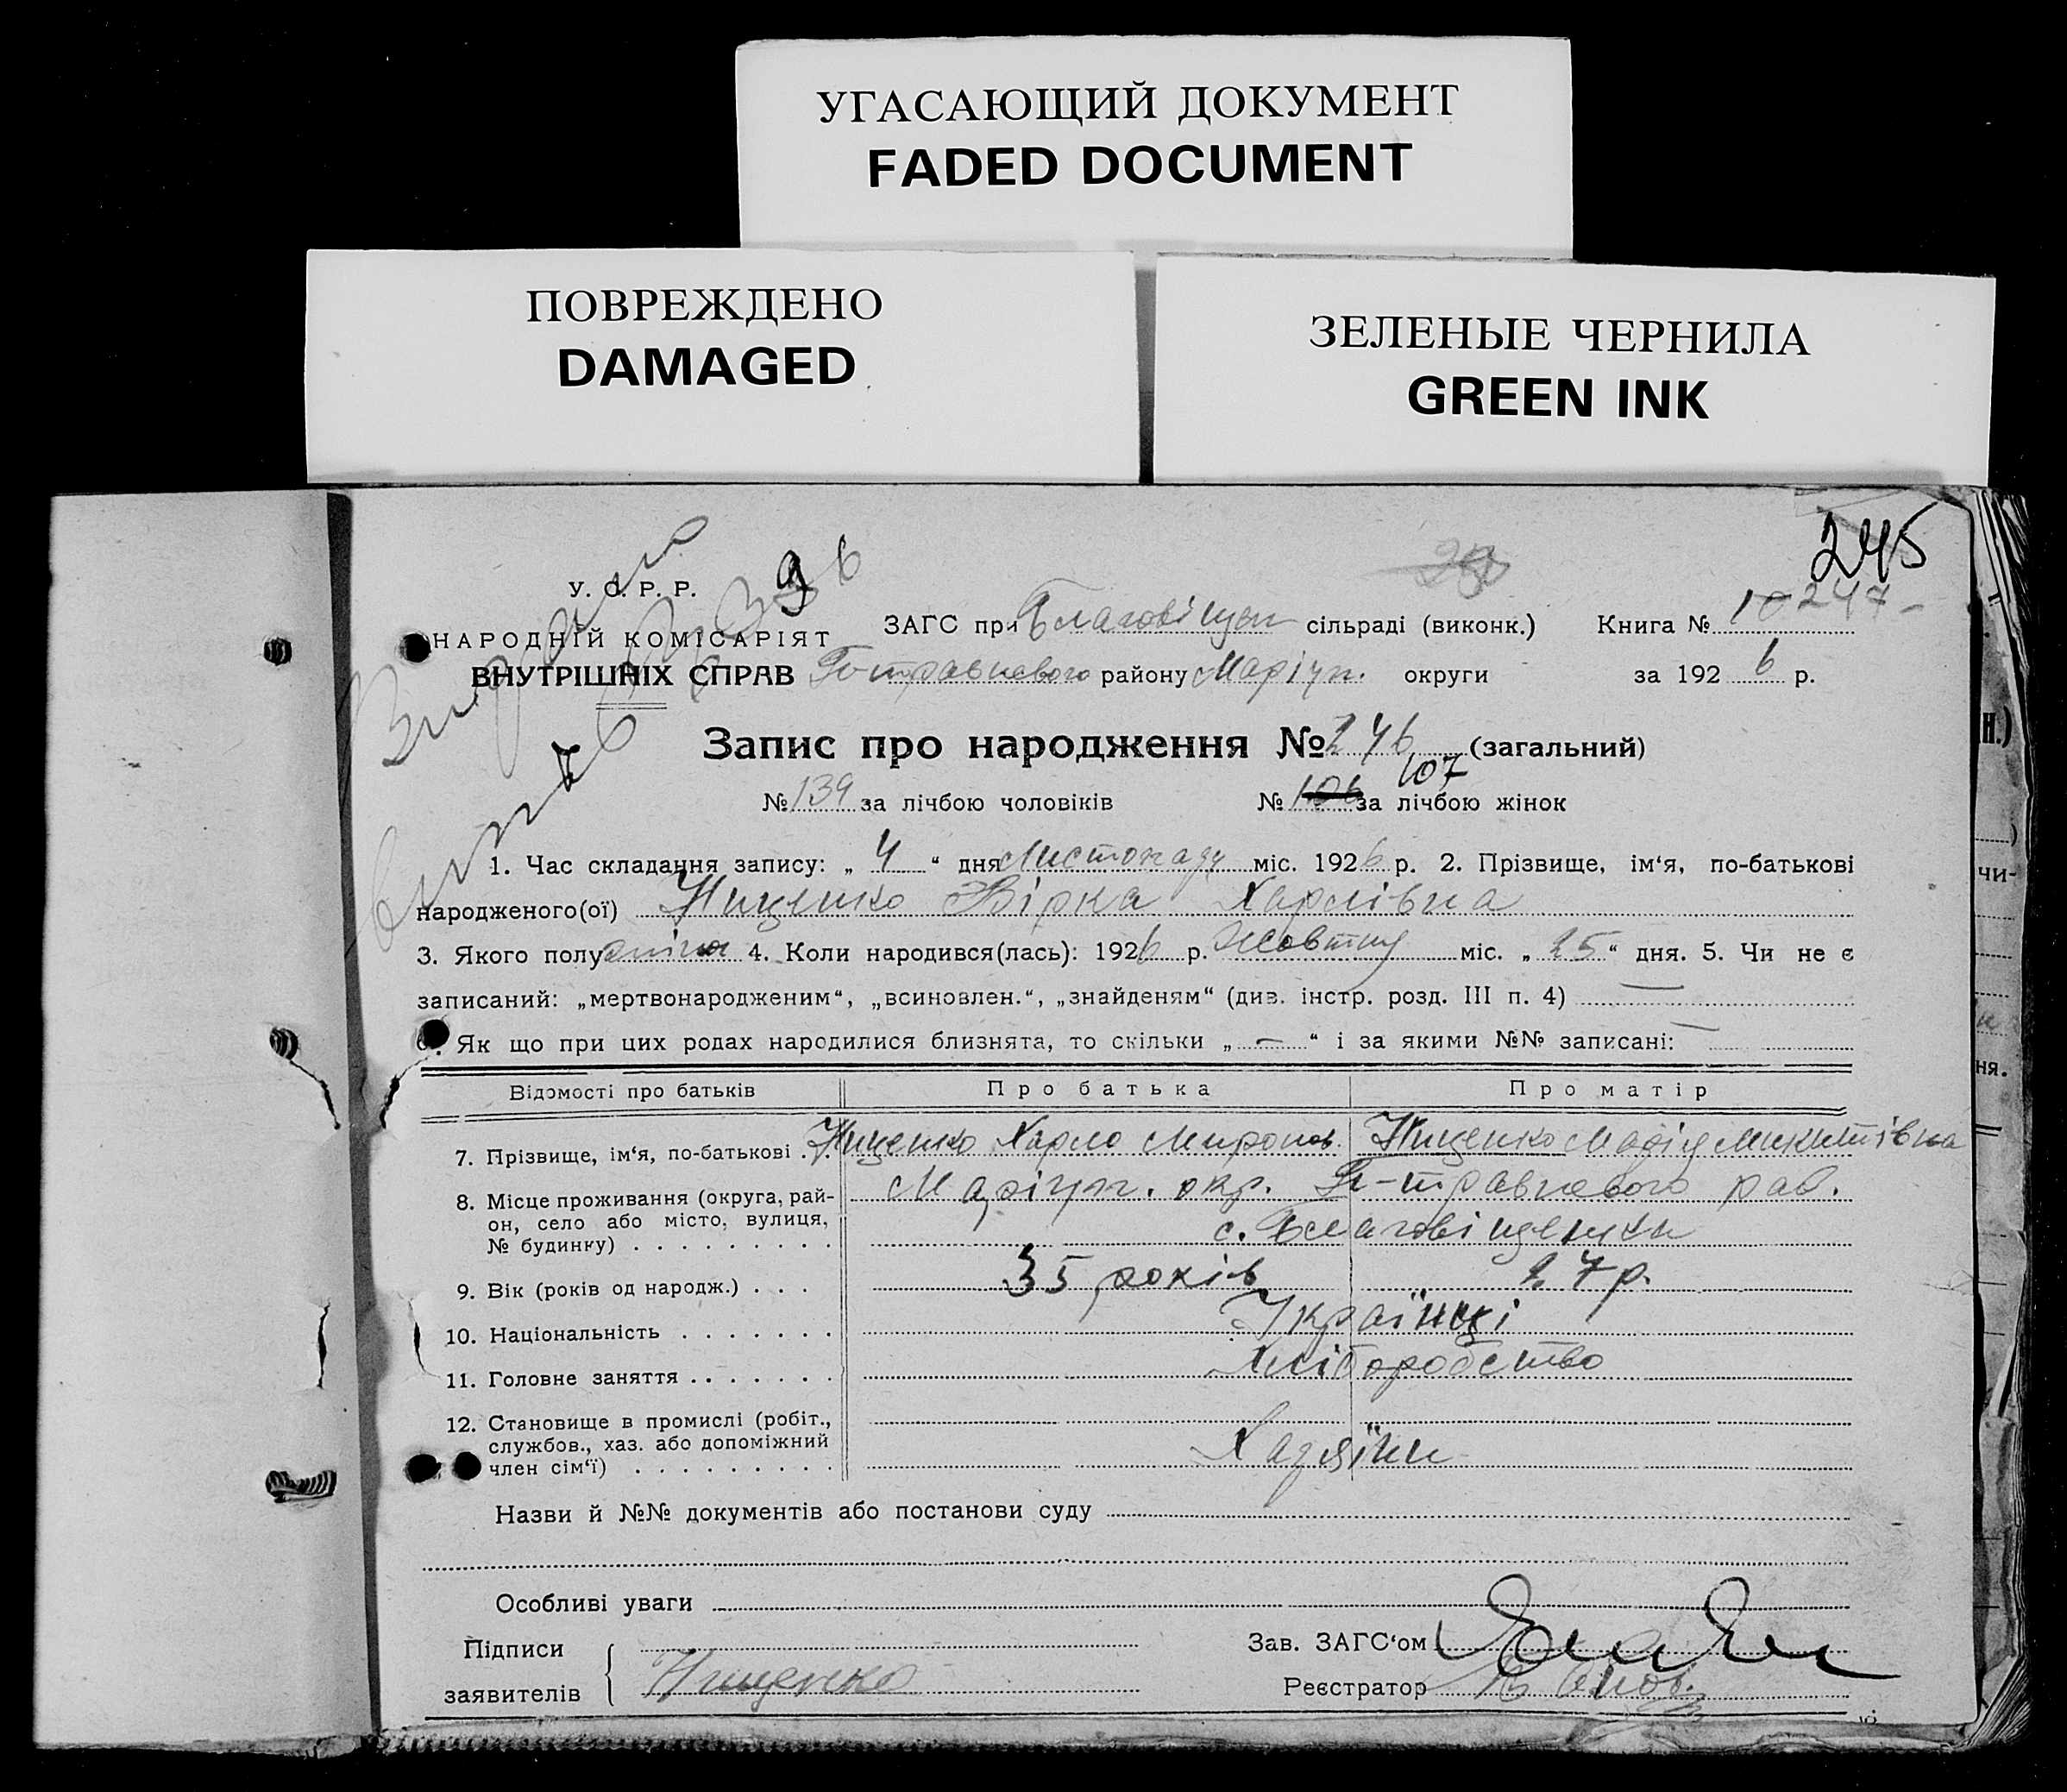 УГАСАЮЩИЙ ДОКУМЕНТ
FADED DOCUMENT
ПОВРЕЖДЕНО
DAMAGED
ЗЕЛЕНЫЕ ЧЕРНИЛА
GREEN INK
245
У. С. Р. Р.
НАРОДНІЙ КОМІСАРІЯТ
ВНУТРІШНІХ СПРАВ
ЗАГС при Благовіщен сільраді (виконк.) Книга № 10 247
травневого району Маріуп. округи за 192 6 р.
Запис про народження № 246 (загальний)
107
№ 139 за лічбою чоловіків № 106 за лічбою жінок
1. Час складання запису: „ 4 “ дня Листопаду міс. 192 6 р. 2. Прізвище, ім‘я, по-батькові
народженого(ої) Нищенко Вірка Харлівна
3. Якого полу жіноч 4. Коли народився(лась): 192 6 р. Жовтню міс. „ 25 “ дня. 5. Чи не є
записаний: „мертвонародженим“, „всиновлен.“, „знайденям“ (див. інстр. розд. III п. 4) —
6. Як що при цих родах народилися близнята, то скільки „ — “ і за якими №№ записані: —
Відомості про батьків Про батька Про матір
7. Прізвище, ім‘я, по-батькові . . Нищенко Харло Миронов. Нищенко Марія Микитівна
8. Місце проживання (округа, рай- Маріуп. окр. травневого рай.
он, село або місто, вулиця, с. Благовіщенки
№ будинку) . . . . . . . . .
9. Вік (років од народж.) . . . 35 років 27 р.
10. Національність . . . . . . . Українці
11. Головне заняття . . . . . . . Хліборобство
12. Становище в промислі (робіт.,
службов., хаз. або допоміжний Хазяїни
член сім‘ї) . . . . . . . . .
Назви й №№ документів або постанови суду
Особливі уваги
Підписи Зав. ЗАГС‘ом
заявителів Нищенко Реєстратор